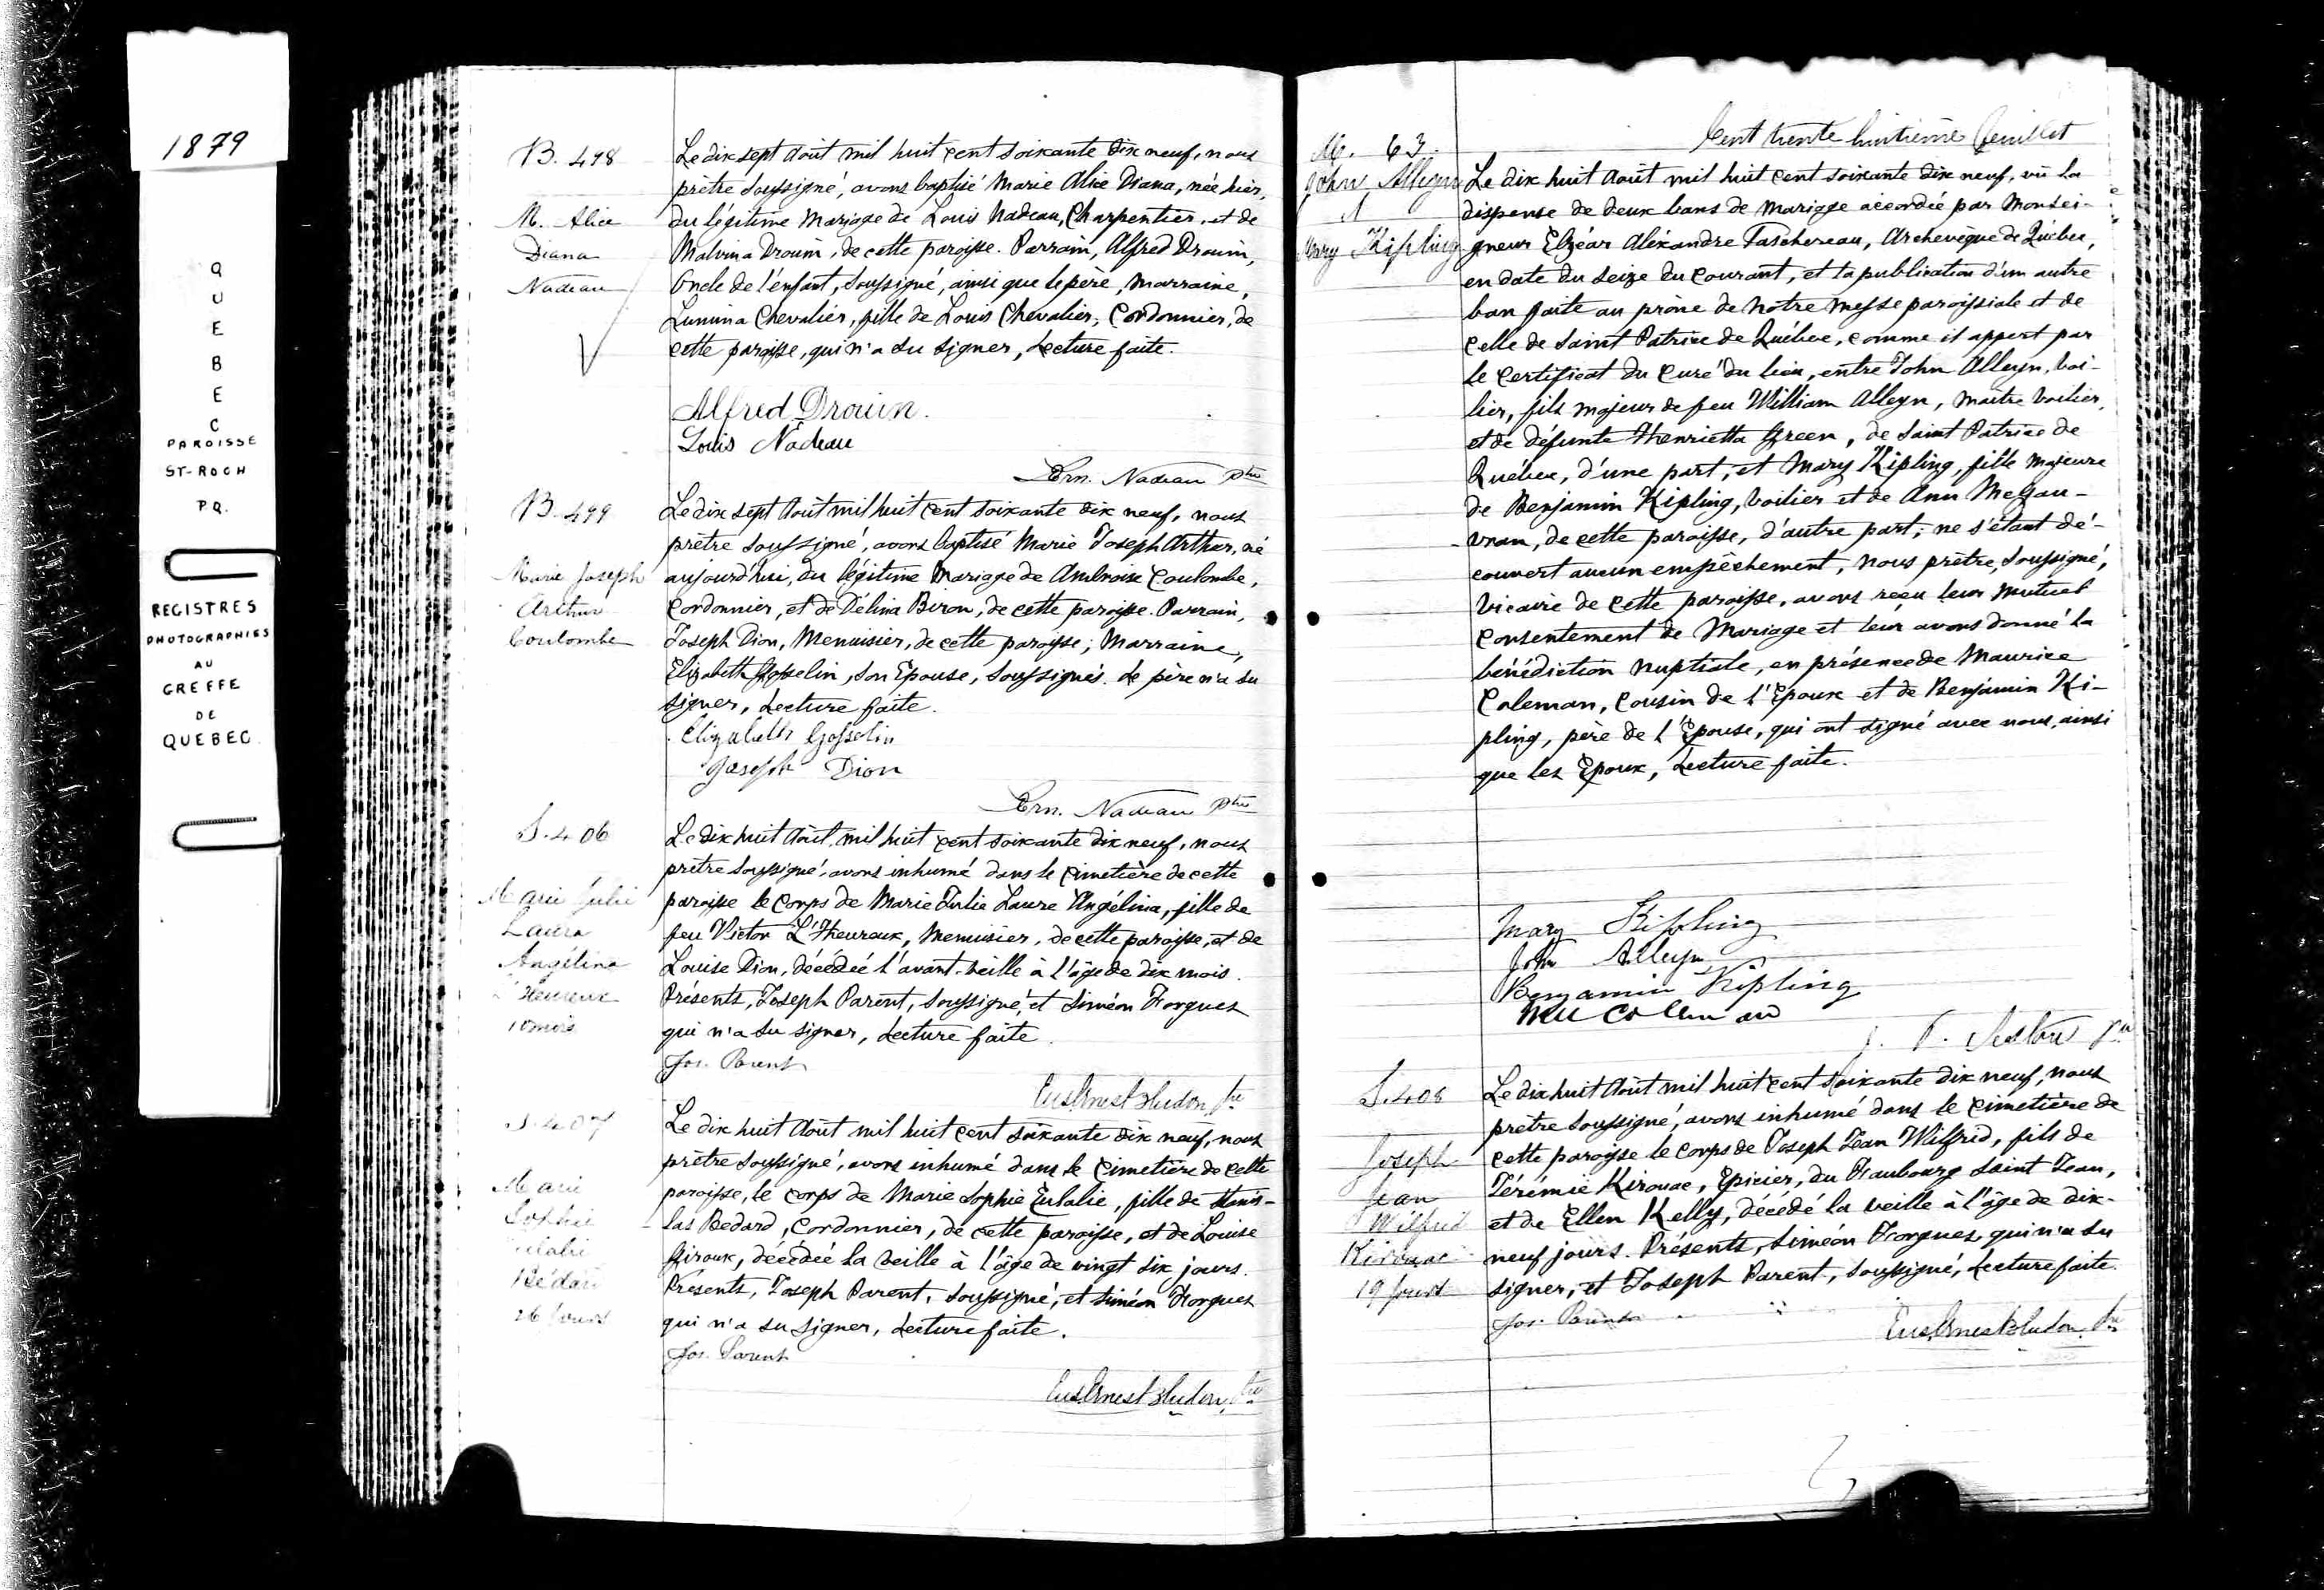 1879
QUEBEC
PAROISSE
ST-ROCH
P.Q.
REGISTRES
PHOTOGRAPHIES
AU
GREFFE
DE
QUEBEC
B. 498
M. Alice
Diana
Nadeau
Le dix sept Août mil huit cent soixante dix neuf, nous
prêtre soussigné, avons baptisé Marie Alice Diana, née hier,
du légitime mariage de Louis Nadeau, Charpentier, et de
Malvina Drouin, de cette paroisse. Parrain, Alfred Drouin,
Oncle de l'enfant, soussigné, ainsi que le père, Marraine,
Lumina Chevalier, fille de Louis Chevalier, Cordonnier, de
cette paroisse, qui n'a su signer, Lecture faite.
Alfred Drouin.
Louis Nadeau
Ern. Nadeau Ptre
B. 499
Marie Joseph
Arthur
Coulombe
Le dix sept Août mil huit cent soixante dix neuf, nous
prêtre soussigné, avons baptisé Marie Joseph Arthur, né
aujourd'hui, du légitime Mariage de Ambroise Coulombe,
Cordonnier, et de Délina Biron, de cette paroisse. Parrain,
Joseph Dion, Menuisier, de cette paroisse; Marraine,
Elizabeth Gosselin, son Epouse, soussignés. Le père n'a su
signer, Lecture faite.
Elizabeth Gosselin
Joseph Dion
Ern. Nadeau Ptre
S. 406
Marie Julie
Laura
Angélina
L'Heureux
10 mois
Le dix huit Août mil huit cent soixante dix neuf, nous
prêtre soussigné, avons inhumé dans le Cimetière de cette
paroisse le Corps de Marie Julie Laure Angélina, fille de
feu Victor L'Heureux, Menuisier, de cette paroisse, et de
Louise Dion, décédée l'avant-veille à l'âge de dix mois.
Présents, Joseph Parent, soussigné, et Siméon Forgues
qui n'a su signer, Lecture faite.
Jos. Parent
Eus Ernest Hudon, Ptre
S. 407
Marie
Sophie
Eulalie
Bédard
26 jours
Le dix huit Août mil huit cent soixante dix neuf, nous
prêtre soussigné, avons inhumé dans le Cimetière de cette
paroisse, le corps de Marie Sophie Eulalie, fille de Stanis-
las Bedard, Cordonnier, de cette paroisse, et de Louise
Giroux, décédée la veille à l'âge de vingt six jours.
Présents, Joseph Parent, soussigné, et Siméon Forgues
qui n'a su signer, Lecture faite.
Jos. Parent
Eus Ernest Hudon, Ptre
Cent trente huitième feuillet
M. 63.
John Alleyn
&
Mary Kipling
Le dix huit Août mil huit cent soixante dix neuf, vû la
dispense de deux bans de mariage accordée par Monsei-
gneur Elzéar Alexandre Taschereau, Archevêque de Québec,
en date du seize du courant, et la publication d'un autre
ban faite au prône de notre messe paroissiale et de
celle de Saint Patrice de Québec, comme il appert par
le certificat du Curé du lieu, entre John Alleyn, voi-
lier, fils majeur de feu William Alleyn, maître voilier,
et de défunte Henrietta Green, de Saint Patrice de
Québec, d'une part; et Mary Kipling, fille majeure
de Benjamin Kipling, voilier et de Ann McGau-
vran, de cette paroisse, d'autre part; ne s'étant dé-
couvert aucun empêchement, nous prêtre, soussigné,
Vicaire de cette paroisse, avons reçu leur mutuel
consentement de Mariage et leur avons donné la
bénédiction nuptiale, en présence de Maurice
Coleman, cousin de l'Epoux et de Benjamin Ki-
pling, père de l'Epouse, qui ont signé avec nous, ainsi
que les Epoux, Lecture faite.
Mary Kipling
John Alleyn
Benjamin Kipling
S. 408
Joseph
Jean
Wilfrid
Kirouac
19 jours
Le dix huit Août mil huit cent soixante dix neuf, nous
prêtre soussigné, avons inhumé dans le cimetière de
cette paroisse le corps de Joseph Jean Wilfrid, fils de
Jérémie Kirouac, Epicier, du Faubourg Saint Jean,
et de Ellen Kelly, décédé la veille à l'âge de dix-
neuf jours. Présents, Siméon Forgues qui n'a su
signer, et Joseph Parent, soussigné, Lecture faite.
Jos. Parent
Eus Ernest Hudon, Ptre